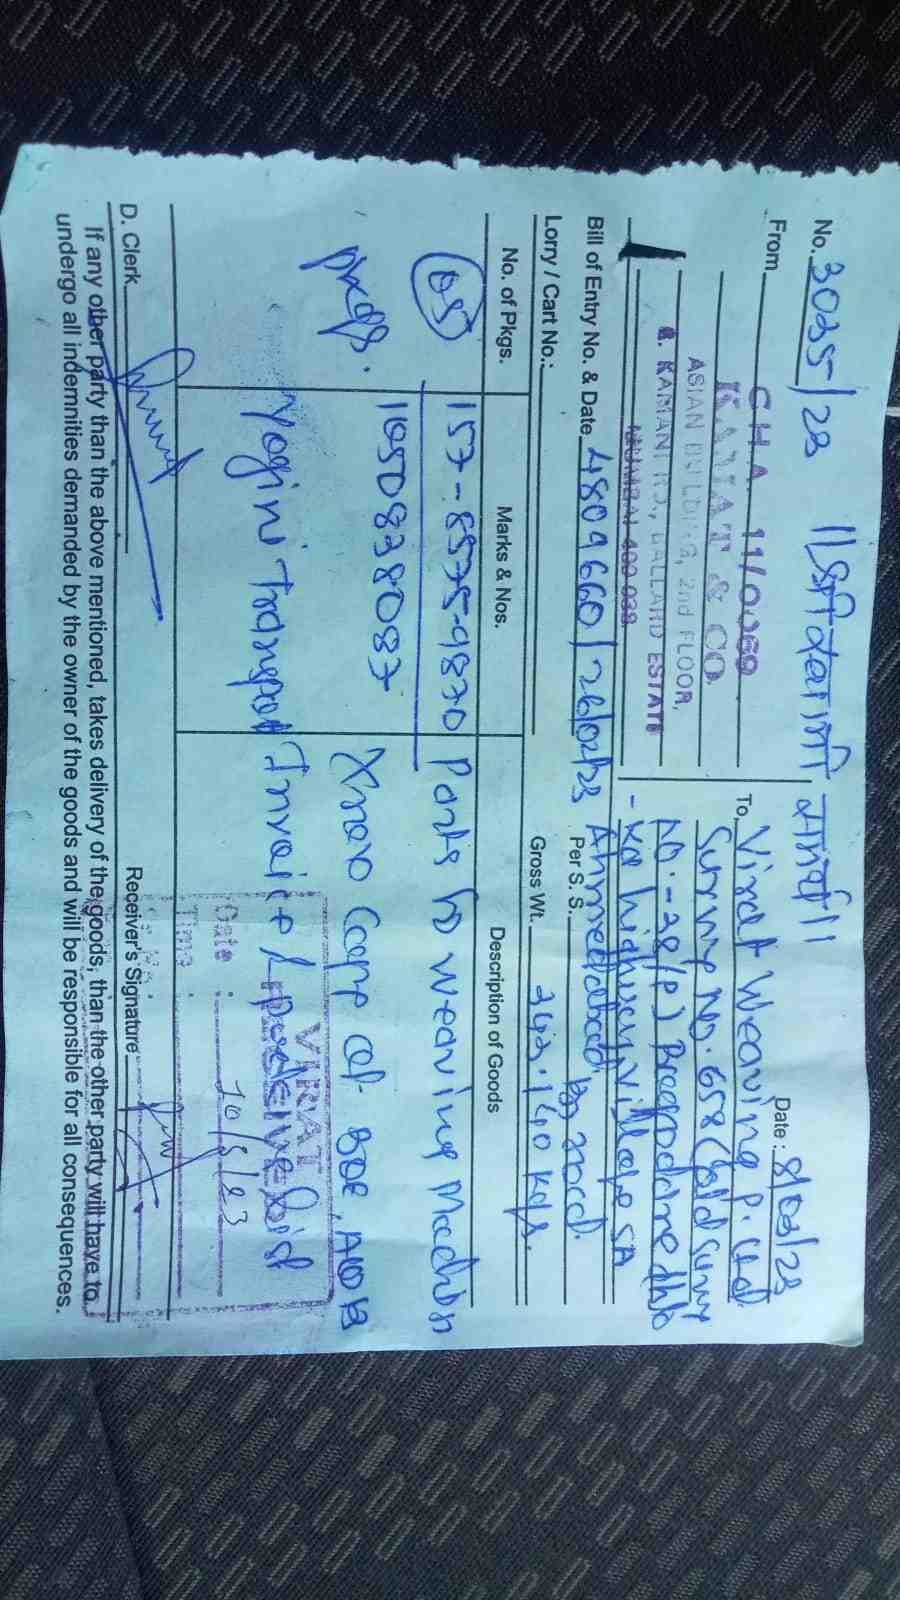 No. 3025/23 Date: 8/03/23
From
C H A 11/0369
KAMAT & CO.
ASIAN BUILDING, 2nd FLOOR,
R. KAMANI RD., BALLARD ESTATE
MUMBAI-400 038.
To, Virat Weaving P. Ltd
Survey No. 658 (old survy
No. -28/P)
highway village
Ahmedabad
by road
Bill of Entry No. & Date 4809660/26/02/23
Per S. S.
Lorry / Cart No.:
Gross Wt. 140 kgs.
No. of Pkgs. Marks & Nos. Description of Goods
05 157-8575-9870 Parts to weaving Machin
pkgs. 1650838087 Xrox Copy of BOE, AWB
Yogini Transport Invoice / packing list
VIRAT
Date : 10/3/23
Time :
D. Clerk Receiver's Signature
If any other party than the above mentioned, takes delivery of the goods, than the other party will have to
undergo all indemnities demanded by the owner of the goods and will be responsible for all consequences.